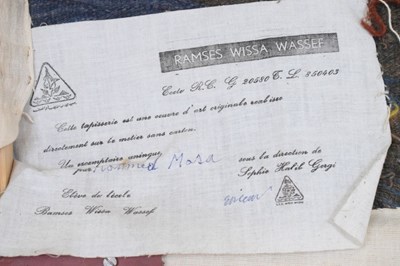 RAMSES WISSA, WASSEF
Ecole R.C. G 20580 T. L. 250402
Cette tapisserie est une oeuvre d'art originale realisee
directement sur le metier sans carton.
Un exemplaire unique
par Mohamed Mosa
sous la direction de
Sophie Habib Gorgi
Elève de l'école
Ramses Wissa Wassef